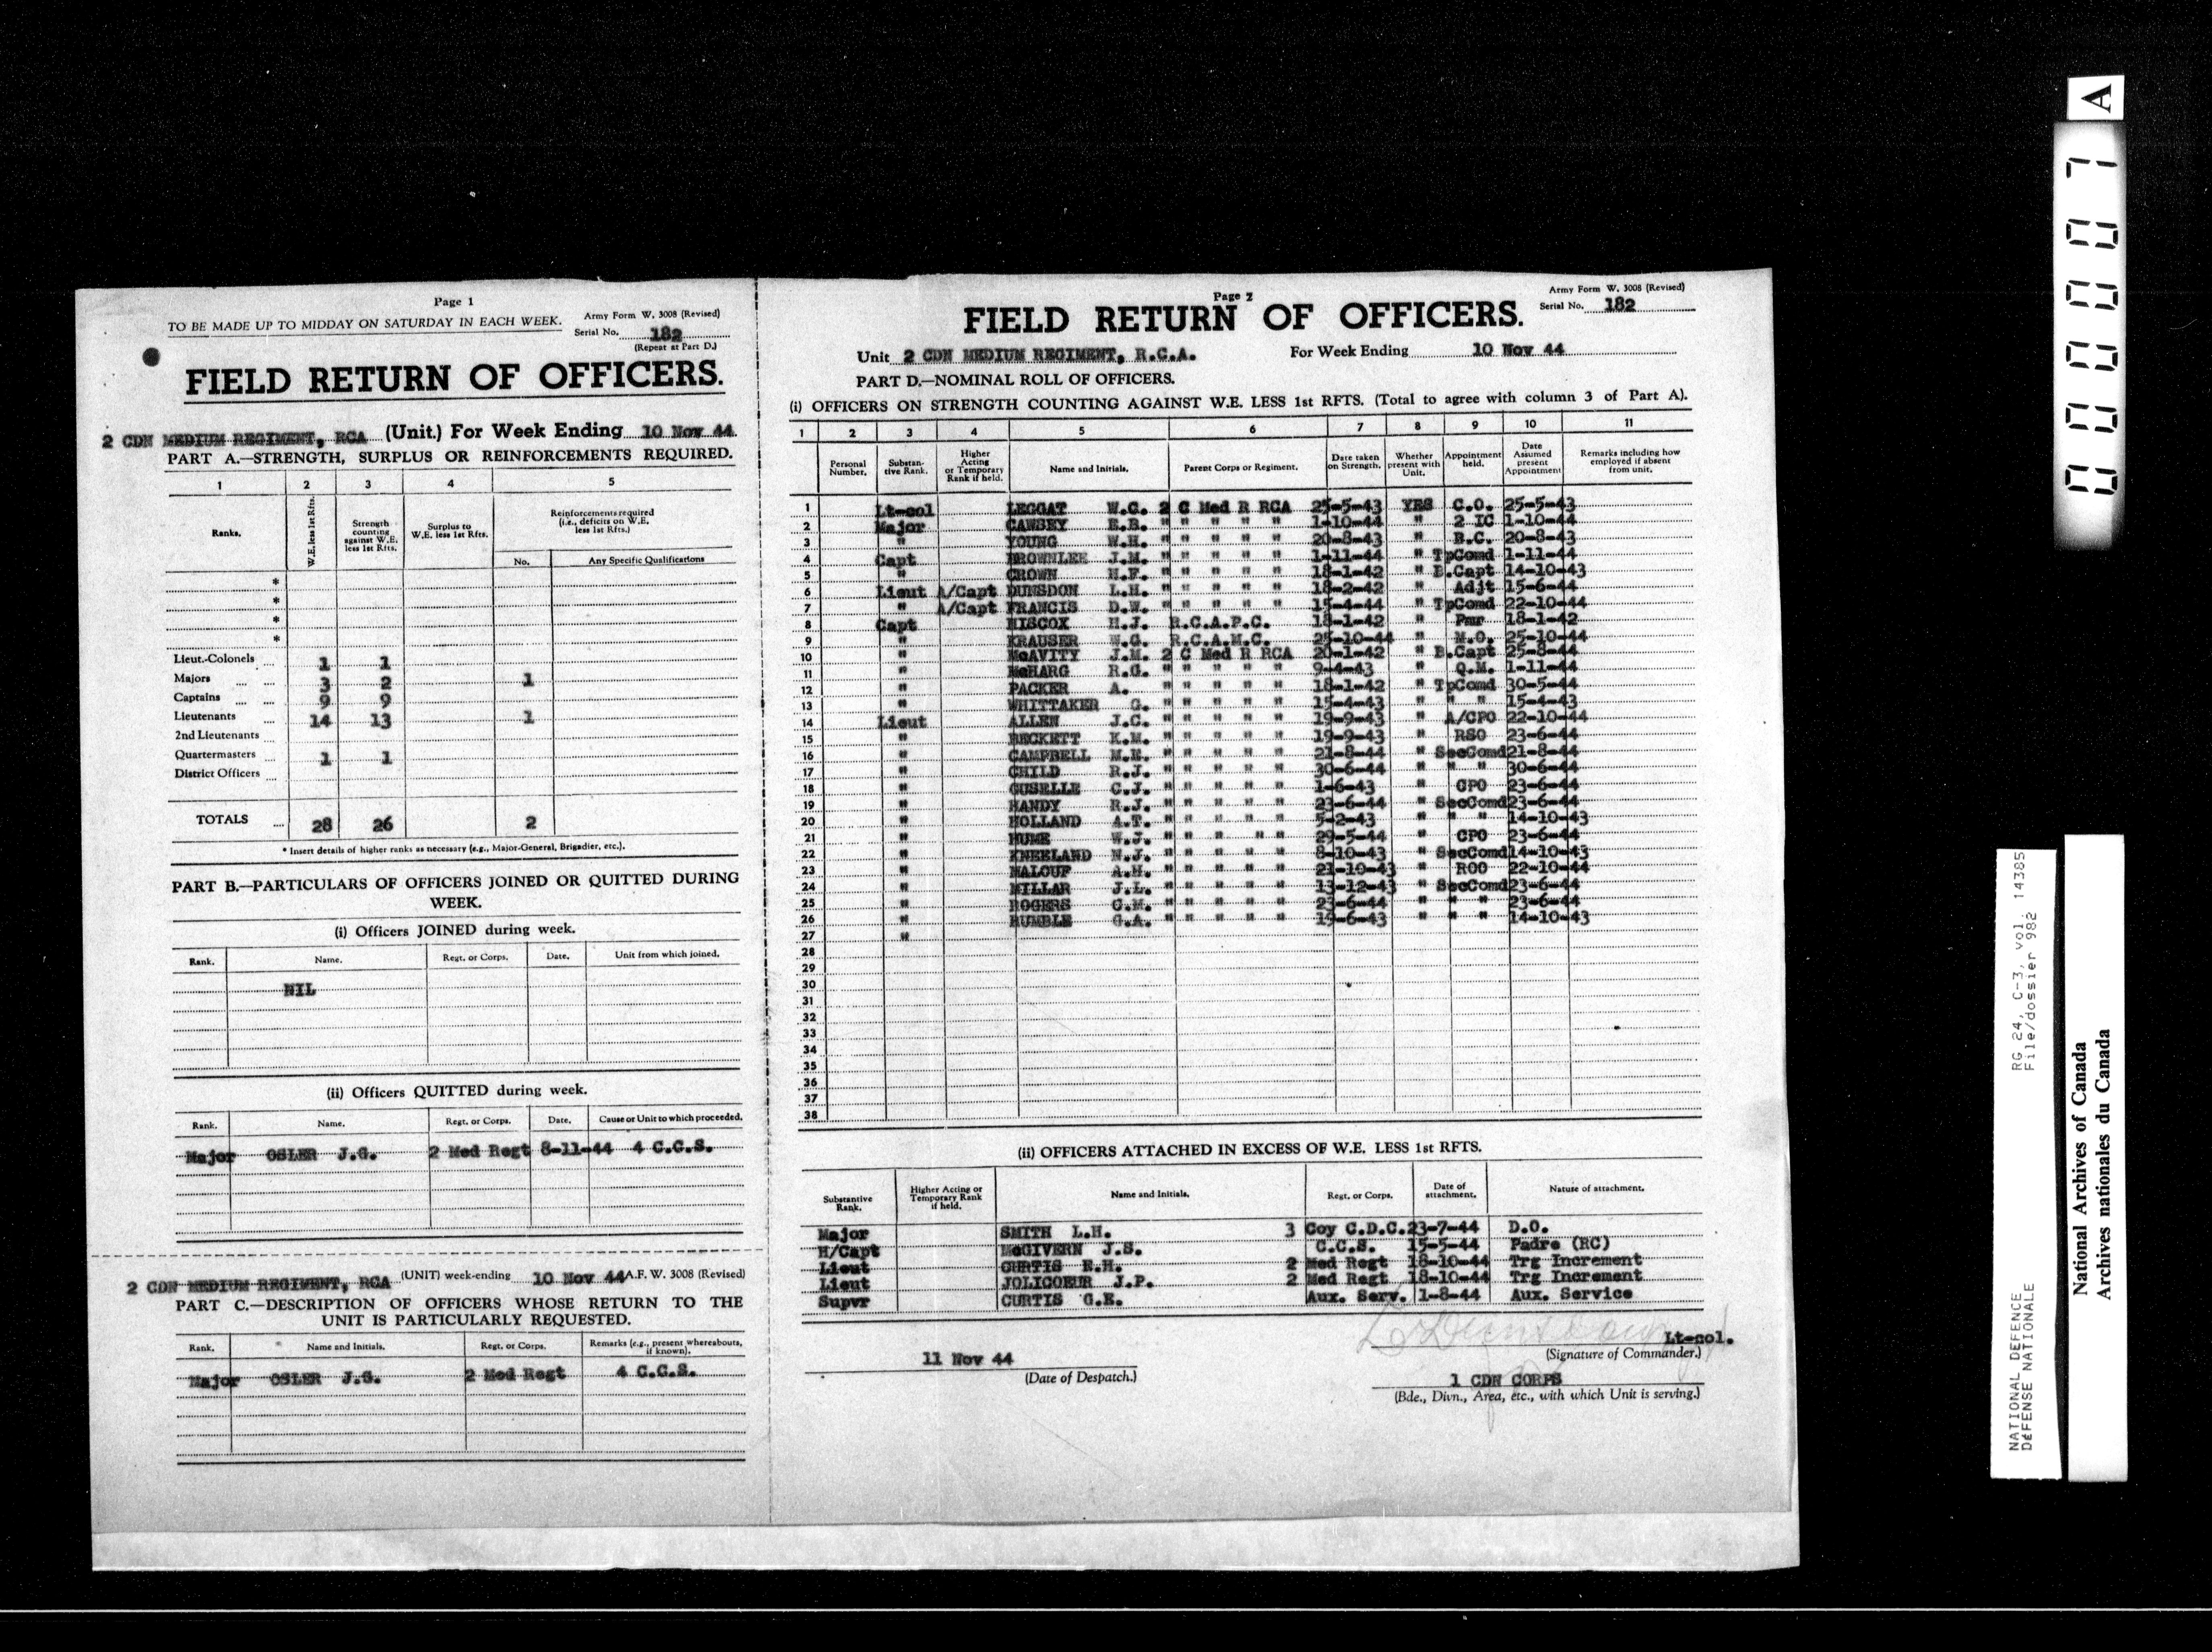 Page 1
TO BE MADE UP TO MIDDAY ON SATURDAY IN EACH WEEK.
Army Form W. 3008 (Revised)
Serial No. 182
(Repeat at Part D.)
FIELD RETURN OF OFFICERS.
2 CDN MEDIUM REGIMENT, RCA (Unit.) For Week Ending 10 Nov 44
PART A.—STRENGTH, SURPLUS OR REINFORCEMENTS REQUIRED.
1 2 3 4 5
Ranks. W.E. less 1st Rfts. Strength counting against W.E. less 1st Rfts. Surplus to W.E. less 1st Rfts. Reinforcements required (i.e., deficits on W.E. less 1st Rfts.)
No. Any Specific Qualifications
*
*
*
*
Lieut.-Colonels 1 1
Majors 3 2 1
Captains 9 9
Lieutenants 14 13 1
2nd Lieutenants
Quartermasters 1 1
District Officers
TOTALS 28 26 2
* Insert details of higher ranks as necessary (e.g., Major-General, Brigadier, etc.).
PART B.—PARTICULARS OF OFFICERS JOINED OR QUITTED DURING
WEEK.
(i) Officers JOINED during week.
Rank. Name. Regt. or Corps. Date. Unit from which joined.
NIL
(ii) Officers QUITTED during week.
Rank. Name. Regt. or Corps. Date. Cause or Unit to which proceeded.
Major OSLER J.G. 2 Med Regt 8-11-44 4 C.C.S.
2 CDN MEDIUM REGIMENT, RCA (UNIT) week-ending 10 Nov 44 A.F. W. 3008 (Revised)
PART C.—DESCRIPTION OF OFFICERS WHOSE RETURN TO THE
UNIT IS PARTICULARLY REQUESTED.
Rank. Name and Initials. Regt. or Corps. Remarks (e.g., present whereabouts, if known).
Major OSLER J.G. 2 Med Regt 4 C.C.S.
Page 2
Army Form W. 3008 (Revised)
Serial No. 182
FIELD RETURN OF OFFICERS.
Unit 2 CDN MEDIUM REGIMENT, R.C.A. For Week Ending 10 Nov 44
PART D.—NOMINAL ROLL OF OFFICERS.
(i) OFFICERS ON STRENGTH COUNTING AGAINST W.E. LESS 1st RFTS. (Total to agree with column 3 of Part A).
1 2 3 4 5 6 7 8 9 10 11
Personal Number. Substantive Rank. Higher Acting or Temporary Rank if held. Name and Initials. Parent Corps or Regiment. Date taken on Strength. Whether present with Unit. Appointment held. Date Assumed present Appointment Remarks including how employed if absent from unit.
1 Lt-col LEGGAT W.C. 2 C Med R RCA 25-5-43 YES C.O. 25-5-43
2 Major CAWSEY E.B. " " " " " 1-10-44 " 2 IC 1-10-44
3 " YOUNG W.H. " " " " " 20-8-43 " B.C. 20-8-43
4 Capt BROWNLEE J.M. " " " " " 1-11-44 " TpComd 1-11-44
5 " CROWN H.F. " " " " " 18-1-42 " B.Capt 14-10-43
6 Lieut A/Capt DUNSDON L.H. " " " " " 18-2-42 " Adjt 15-6-44
7 " A/Capt FRANCIS D.W. " " " " " 15-4-44 " TpComd 22-10-44
8 Capt HISCOX H.J. R.C.A.P.C. 18-1-42 " Pmr 18-1-42
9 " KRAUSER W.G. R.C.A.M.C. 25-10-44 " M.O. 25-10-44
10 " McAVITY J.M. 2 C Med R RCA 20-1-42 " B.Capt 25-8-44
11 " McHARG R.G. " " " " " 9-4-43 " Q.M. 1-11-44
12 " PACKER A. " " " " " 18-1-42 " TpComd 30-5-44
13 " WHITTAKER G. " " " " " 15-4-43 " " " 15-4-43
14 Lieut ALLEN J.C. " " " " " 19-9-43 " A/CPO 22-10-44
15 " BECKETT K.M. " " " " " 19-9-43 " RSO 23-6-44
16 " CAMPBELL M.E. " " " " " 21-8-44 " SecComd 21-8-44
17 " CHILD R.J. " " " " " 30-6-44 " " " 30-6-44
18 " GUSELLE C.J. " " " " " 1-6-43 " CPO 23-6-44
19 " HANDY R.J. " " " " " 23-6-44 " SecComd 23-6-44
20 " HOLLAND A.T. " " " " " 5-2-43 " " " 14-10-43
21 " HUME W.J. " " " " " 29-5-44 " CPO 23-6-44
22 " KNEELAND N.J. " " " " " 8-10-43 " SecComd 14-10-43
23 " MALOUF A.H. " " " " " 21-10-43 " ROO 22-10-44
24 " MILLAR J.L. " " " " " 13-12-43 " SecComd 23-6-44
25 " ROGERS G.M. " " " " " 23-6-44 " " " 23-6-44
26 " RUMBLE G.A. " " " " " 19-6-43 " " " 14-10-43
27 "
28
29
30
31
32
33
34
35
36
37
38
(ii) OFFICERS ATTACHED IN EXCESS OF W.E. LESS 1st RFTS.
Substantive Rank. Higher Acting or Temporary Rank if held. Name and Initials. Regt. or Corps. Date of attachment. Nature of attachment.
Major SMITH L.H. 3 Coy C.D.C. 23-7-44 D.O.
H/Capt McGIVERN J.S. C.C.S. 15-5-44 Padre (RC)
Lieut CURTIS E.H. 2 Med Regt 18-10-44 Trg Increment
Lieut JOLICOEUR J.P. 2 Med Regt 18-10-44 Trg Increment
Supvr CURTIS G.E. Aux. Serv. 1-8-44 Aux. Service
Lt-col.
(Signature of Commander.)
11 Nov 44
(Date of Despatch.)
1 CDN CORPS
(Bde., Divn., Area, etc., with which Unit is serving.)
A
000007
RG 24, C-3, vol. 14385
File/dossier 982
NATIONAL DEFENCE
DéFENSE NATIONALE
National Archives of Canada
Archives nationales du Canada